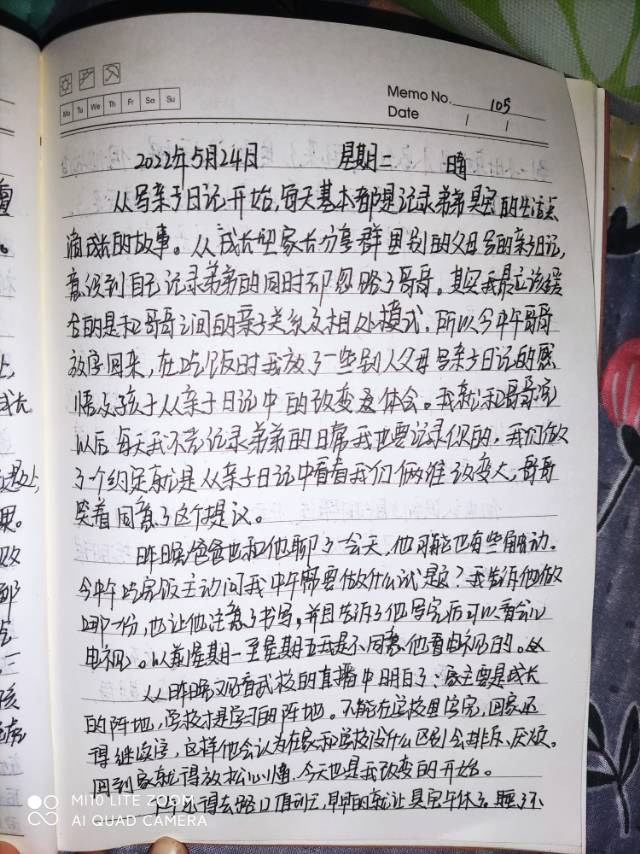 Mo Tu We Th Fr Sa Su
Memo No. 105
Date / /
2022年5月24日 星期二 晴
从写亲子日记开始,每天基本都是记录弟弟的生活点
滴成长的故事。从成长吧家长分享群里别的父母写的亲子日记,
意识到自己记录弟弟的同时却忽略了哥哥。其实我最应该缓
和的是和哥哥之间的亲子关系及相处模式,所以今中午哥哥
放学回来,在吃饭时我放了一些别人父母写亲子日记的感
悟及孩子从亲子日记中的改变及体会。我就和哥哥说
以后每天我不光记录弟弟的日常我也要记录你的,我们做
了个约定就是从亲子日记中看看我们俩谁改变大,哥哥
笑着同意了这个提议。
昨晚爸爸也和他聊了会天,他可能也有些触动。
今中午吃完饭主动问我中午需要做什么试卷?我告诉他做
哪一份,也让他注意了书写,并且告诉了他写完后可以看会儿
电视。以前星期一至星期五我是不同意他看电视的。
从昨晚观看武校的直播中明白了:家主要是成长
的阵地,学校才是学习的阵地。不能在学校里学完,回家还
得继续学,这样他会认为在家和学校没什么区别会排斥、厌烦。
回到家就得放松心情,今天也是我改变的开始。
中午得去路口值班,早早的就让午休了。睡不
MI 10 LITE ZOOM
AI QUAD CAMERA